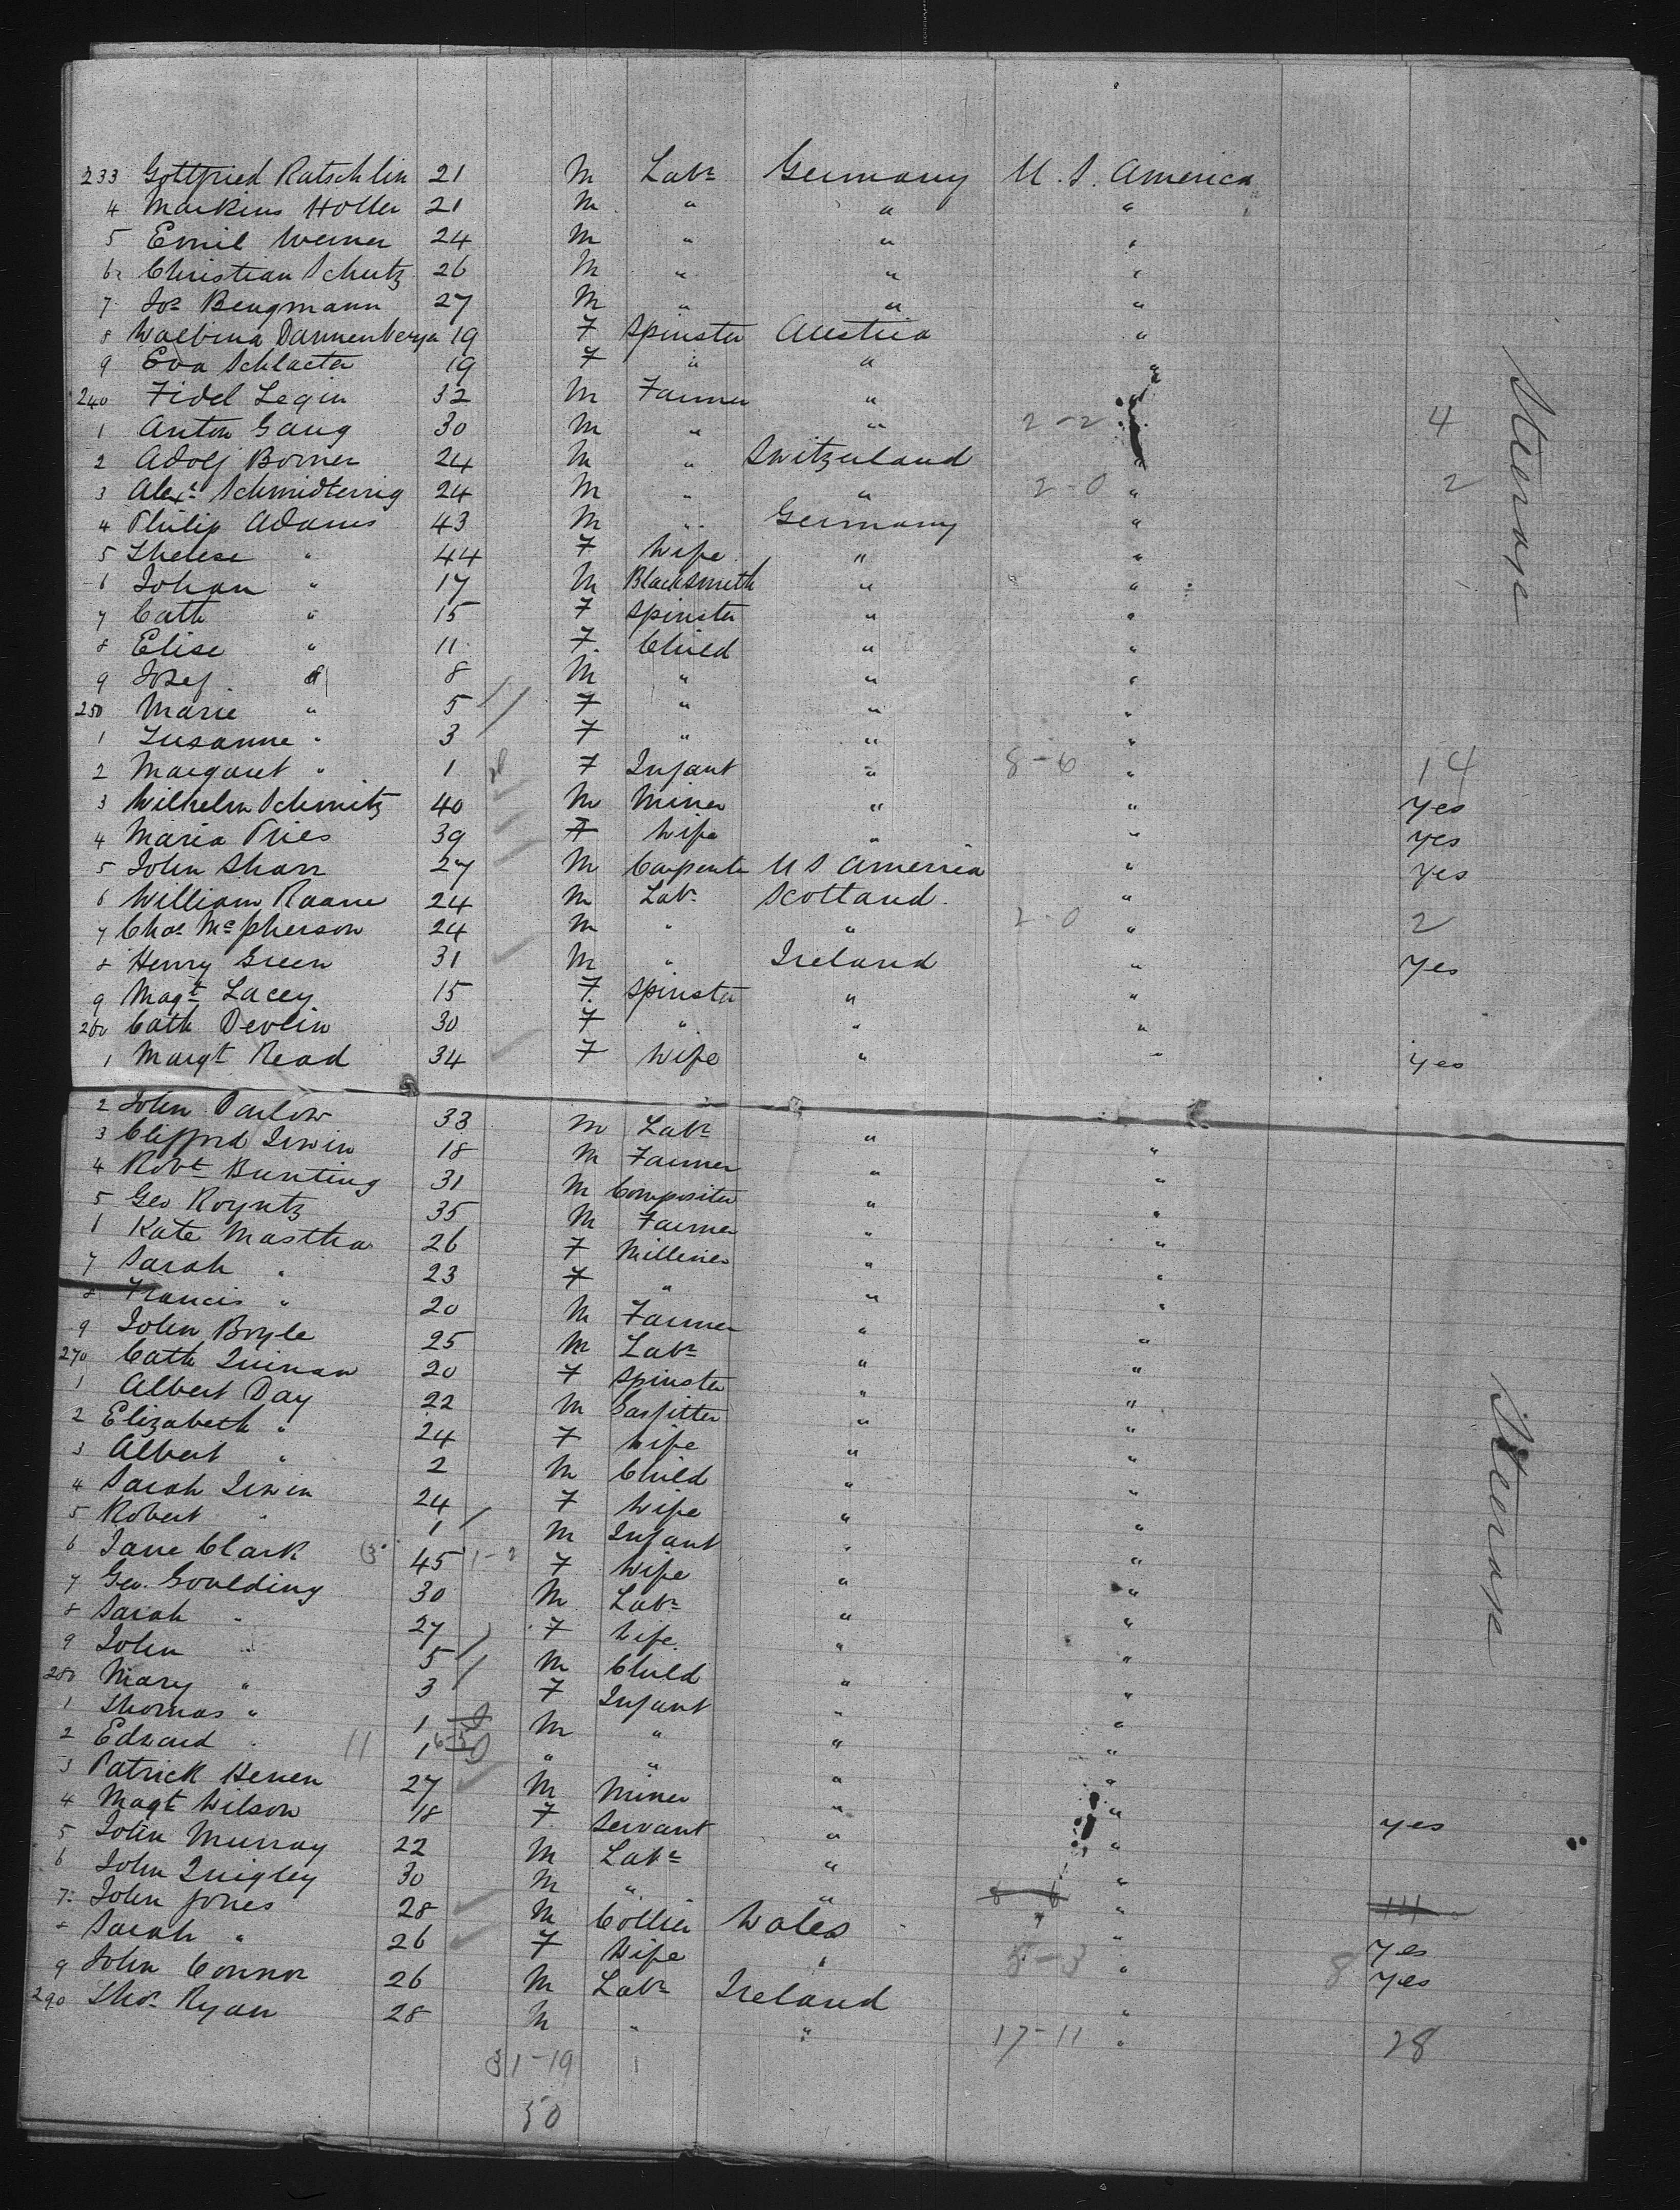 233 Gottfried Ratschlin 21 M Labr Germany U. S. America
4 Markens Holler 21 M " " "
5 Emil Werner 24 M " " "
6 Christian Schutz 26 M " " "
7 Jos Bengmann 27 M " " "
8 Walbina Dannenberga 19 F Spinster Austria "
9 Eva Schlacter 19 F " " "
240 Fidel Legin 32 M Farmer " "
1 Anton Gaug 30 M " " 2-2 " 4
2 Adolf Borner 24 M " Switzerland "
3 Alexr Schmidterrig 24 M " " 2-0 " 2
4 Philip Adams 43 M " Germany "
5 Therese " 44 F Wife " "
6 Johan " 17 M Blacksmith " "
7 Cath " 15 F Spinster " "
8 Elise " 11 F Child " "
9 Josef " 8 M " " "
250 Marie " 5 F " " "
1 Susanne " 3 F " " "
2 Margaret " 1 F Infant " 8-6 " 14
3 Wilhelm Schmitz 40 M Miner " " yes
4 Maria Pries 39 F Wife " " yes
5 John Sharr 27 M Carpenter U S America " yes
6 William Roane 24 M Labr Scotland "
7 Chas McPherson 24 M " " 2-0 " 2
8 Henry Green 31 M " Ireland " yes
9 Magt Lacey 15 F Spinster " "
260 Cath Devlin 30 F " " "
1 Margt Read 34 F Wife " " yes
2 John Parlow 33 M Labr " "
3 Clifford Irwin 18 M Farmer " "
4 Robt Bunting 31 M Compositor " "
5 Geo Royntz 35 M Farmer " "
6 Kate Mastha 26 F Milliner " "
7 Sarah " 23 F " " "
8 Francis " 20 M Farmer " "
9 John Boyle 25 M Labr " "
270 Cath Quinan 20 F Spinster " "
1 Albert Day 22 M Gasfitter " "
2 Elizabeth " 24 F Wife " "
3 Albert " 2 M Child " "
4 Sarah Irwin 24 F Wife " "
5 Robert " 1 M Infant " "
6 Jane Clark 45 F Wife " "
7 Geo. Goulding 30 M Labr " "
8 Sarah " 27 F Wife " "
9 John " 5 M Child " "
280 Mary " 3 F Infant " "
1 Thomas " 1 M " " "
2 Edward " 11 1 " " " "
3 Patrick Heren 27 M Miner " "
4 Magt Wilson 18 F Servant " " yes
5 John Murray 22 M Labr " "
6 John Quigley 30 M " " " 14
7 John Jones 28 M Collier Wales " yes
8 Sarah " 26 F Wife " 5-3 " 8 yes
9 John Connor 26 M Labr Ireland "
290 Thos Ryan 28 M " " 17-11 " 28
31-19
50
Steerage
Steerage